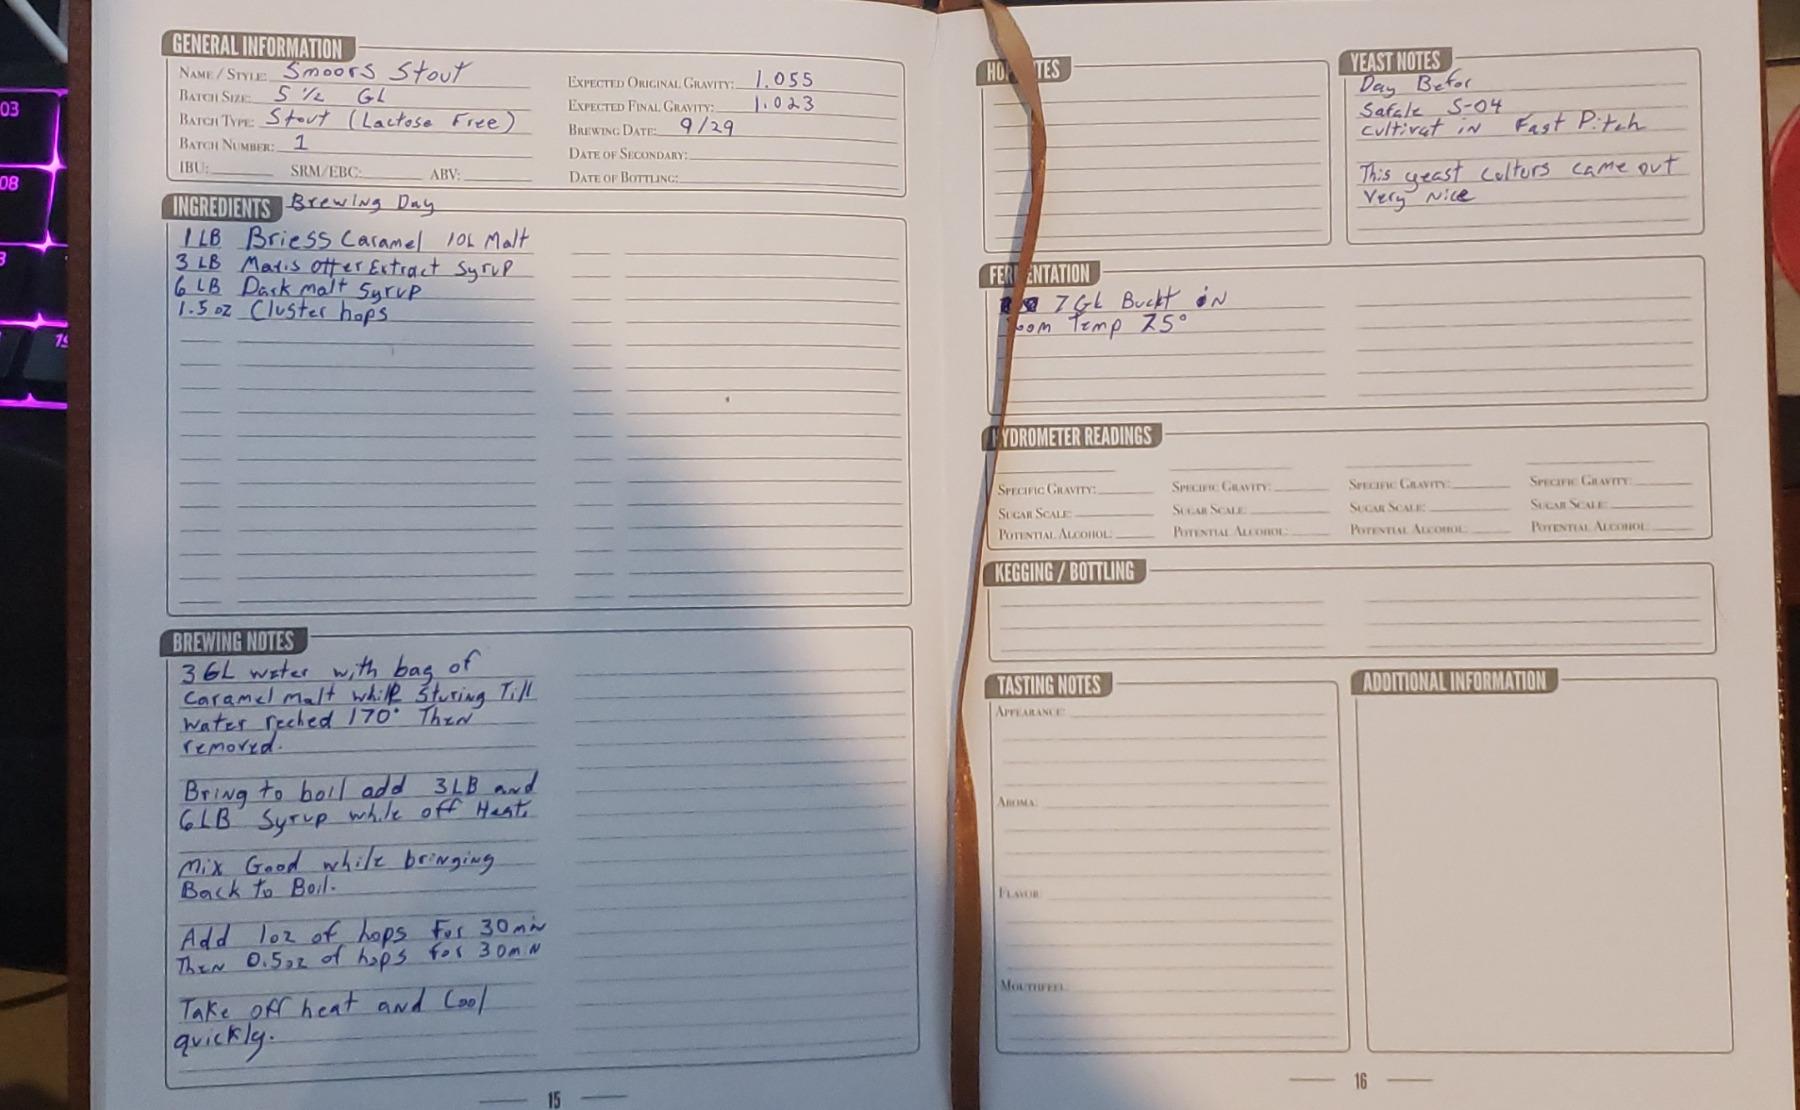 GENERAL INFORMATION
NAME / STYLE: Smoors Stout
BATCH SIZE: 5 1/2 GL
BATCH TYPE: Stout (Lactose Free)
BATCH NUMBER: 1
IBU: SRM/EBC: ABV:
EXPECTED ORIGINAL GRAVITY: 1.055
EXPECTED FINAL GRAVITY: 1.023
BREWING DATE: 9/29
DATE OF SECONDARY:
DATE OF BOTTLING:
INGREDIENTS Brewing Day
1 LB Briess Caramel 10L Malt
3 LB Maris Otter Extract Syrup
6 LB Dark malt Syrup
1.5 oz Cluster hops
BREWING NOTES
3 GL water with bag of
Caramel malt while Sturing Till
Water reched 170° Then
removed.
Bring to boil add 3LB and
6LB Syrup while off Heat.
Mix Good while bringing
Back to Boil.
Add 1oz of hops For 30 min
Then 0.5oz of hops for 30 m N
Take off heat and Cool
quickly.
15
HO TES
YEAST NOTES
Day Befor
Safale S-04
cultivat in Fast Pitch
This yeast cultors came out
Very Nice
FER ENTATION
7 GL Buckt iN
oom Temp 75°
YDROMETER READINGS
SPECIFIC GRAVITY: SPECIFIC GRAVITY: SPECIFIC GRAVITY: SPECIFIC GRAVITY:
SUGAR SCALE: SUGAR SCALE: SUGAR SCALE: SUGAR SCALE:
POTENTIAL ALCOHOL: POTENTIAL ALCOHOL: POTENTIAL ALCOHOL: POTENTIAL ALCOHOL:
KEGGING / BOTTLING
TASTING NOTES
APPEARANCE:
AROMA:
FLAVOR:
MOUTHFEEL:
ADDITIONAL INFORMATION
16
03
08